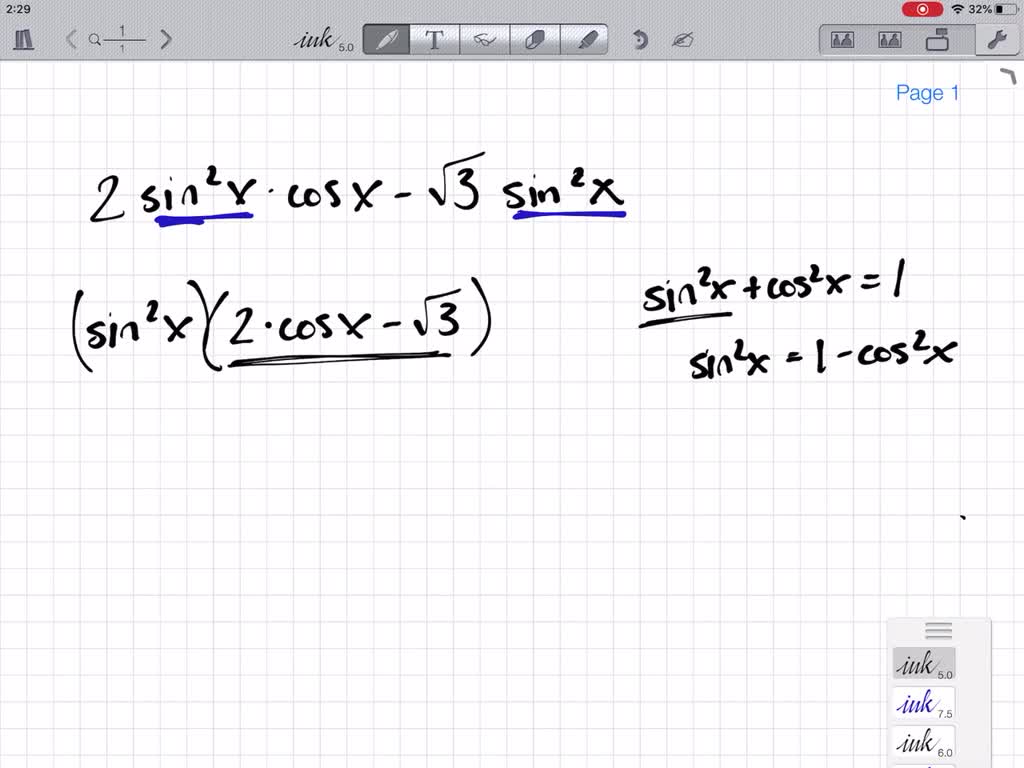 2:29
32%
1
1
ink 5.0
T
Page 1
2 sin²x · cosx - √3 sin²x
(sin²x)(2·cosx - √3)
sin²x + cos²x = 1
sin²x = 1 - cos²x
ink 5.0
ink 7.5
ink 6.0